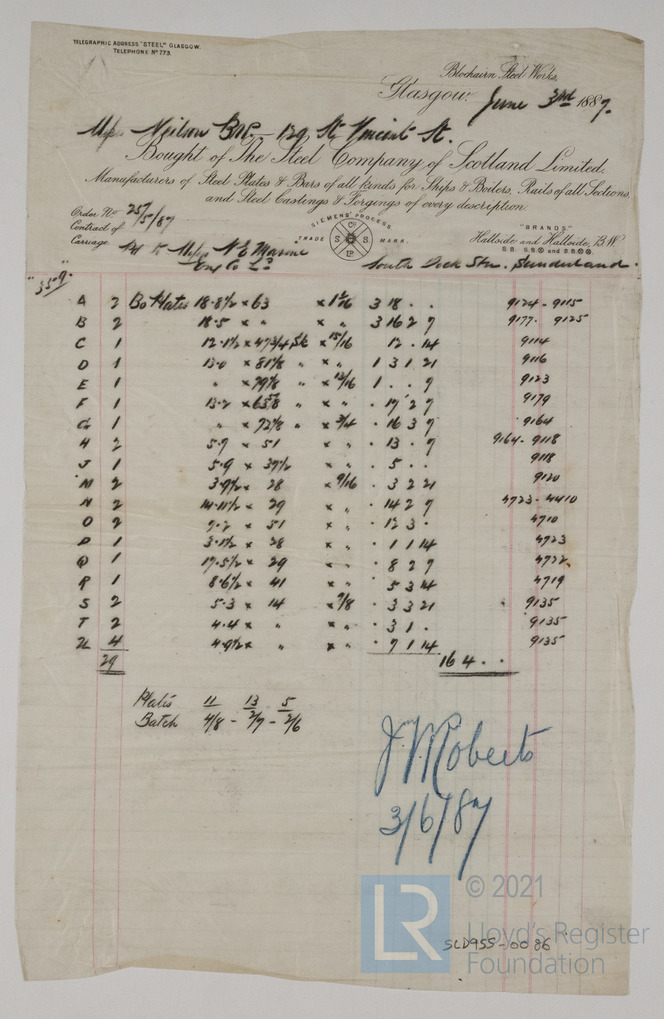 TELEGRAPHIC ADDRESS "STEEL" GLASGOW.
TELEPHONE No 773.
Blochairn Steel Works,
Glasgow. June 3rd 1887.
Neilson Bros. 129 St Vincent St.
Bought of The Steel Company of Scotland Limited.
Manufacturers of Steel Plates & Bars of all kinds for Ships & Boilers, Rails of all Sections,
and Steel Castings & Forgings of every description
Order No 257/5/87
Contract of
Carriage
SIEMENS' PROCESS.
TRADE MARK.
Co S S LD
"BRANDS"
Hallside and Hallside, B.W
N E Marine
Eng Co Ld
South Dock Stn. Sunderland.
"359"
A 2 Bo Plates 18.8½ × 63 × 1 1/16 3 18 . . 9124 - 9115
B 2 18.5 × " × " 3 16 2 7 9177. 9125
C 1 12.1½ × 47 3/4 Sk × 15/16 . 12 . 14 9114
D 1 13.0 × 81 5/8 " × " 1 3 1 21 9116
E 1 " × 79 7/8 " × 13/16 1 . . 7 9123
F 1 13.2 × 65 5/8 " × " . 17 2 7 9179
G 1 " × 72 1/8 " × 3/4 . 16 3 7 9164
H 2 5.9 × 51 × " . 13 . 7 9164. 9118
J 1 5.9 × 37½ × " . 5 . . 9118
M 2 3.9½ × 28 × 9/16 . 3 2 21 9120
N 2 14.11½ × 29 × " . 14 2 7 4723 - 4410
O 2 7.2 × 51 × " . 12 3 . 4710
P 1 3.1½ × 28 × " . 1 1 14 4723
Q 1 17.5½ × 29 × " . 8 2 7 4722
R 1 8.6½ × 41 × " . 5 3 14 4719
S 2 5.3 × 14 × 7/8 . 3 3 21 9135
T 2 4.4 × " × " . 3 1 . 9135
U 4 4.9½ × " × " . 7 1 14 9135
29 16 4 . .
Plates 11 13 5
Batch 4/8 - 2/7 - 2/6
J. W. Roberts
3/6/87
LR © 2021
Lloyd's Register
Foundation
SLD955-0086